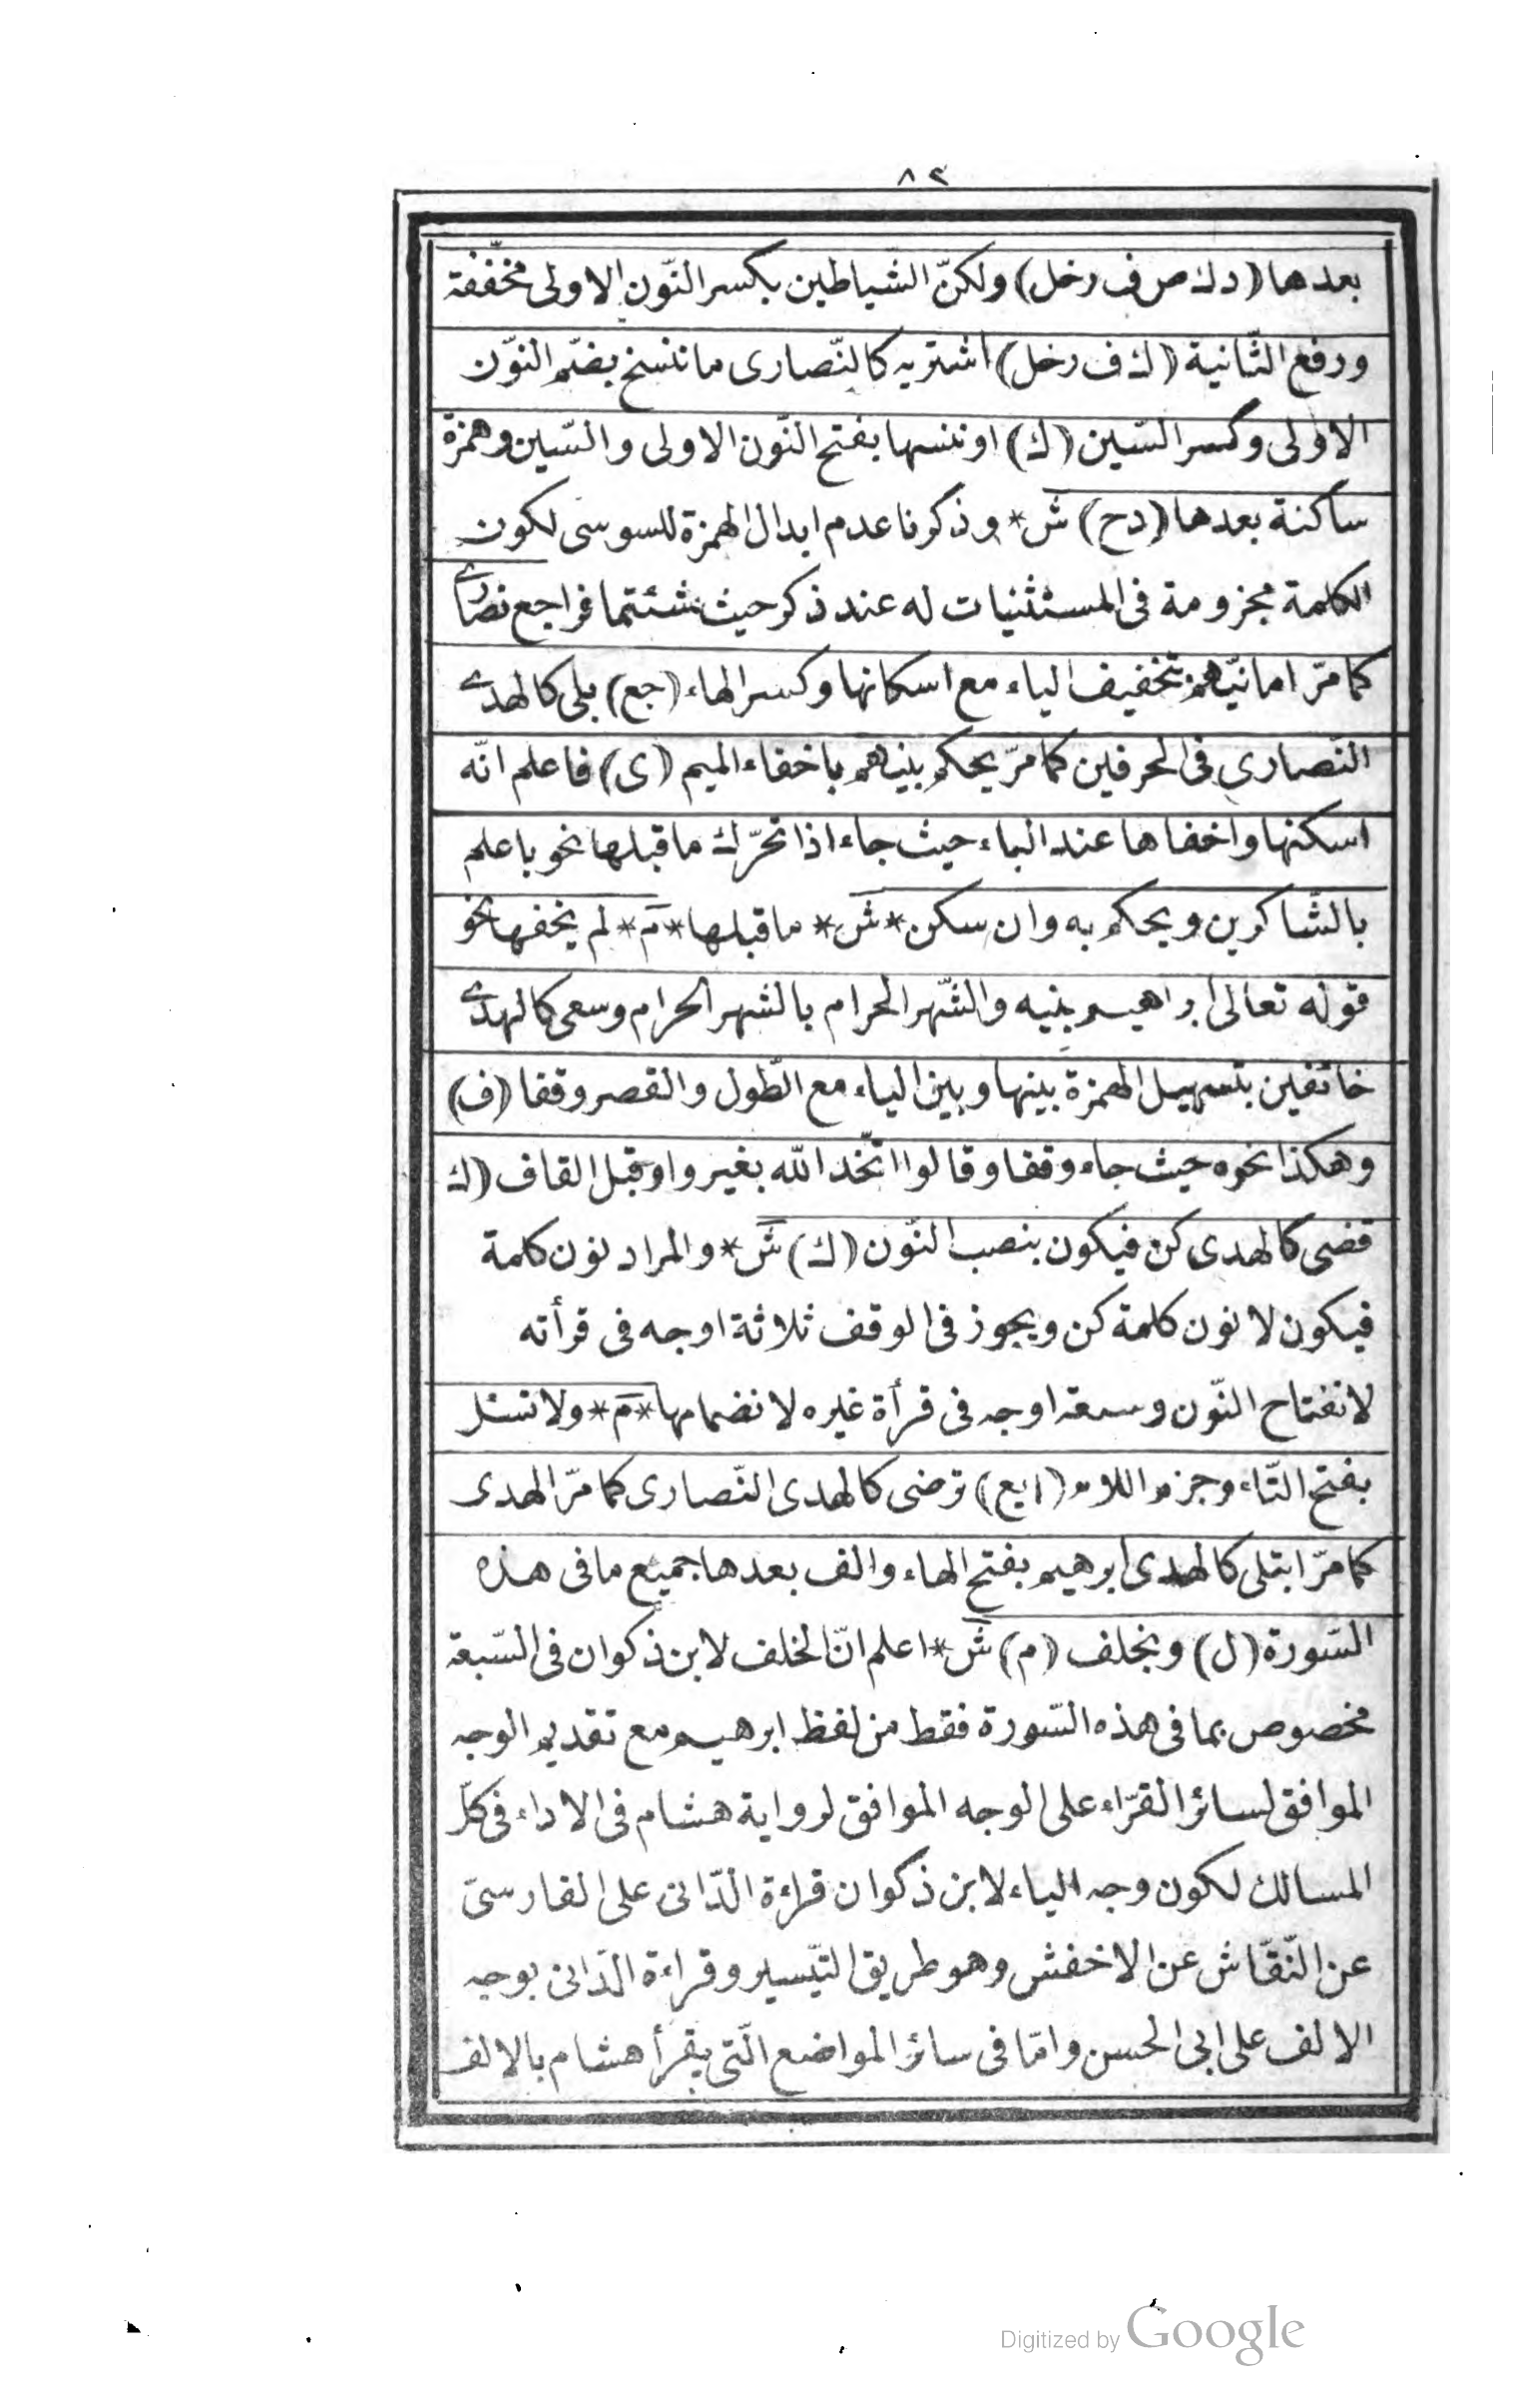 ٨٢
بعدها (دك ص ف رخل) ولكنّ الشّياطين بكسر النّون الاولى مخفّفة
ورفع الثّانية (ك ف رخل) اشتريه كالنّصارى ما ننسخ بضمّ النّون
الاولى وكسر السّين (ك) او ننسها بفتح النّون الاولى والسّين وهمزة
ساكنة بعدها (دح) ش* وذكرنا عدم ابدال الهمزة للسوسى لكون
الكلمة مجزومة فى المستثنيات له عند ذكر حيث شئتما فراجع نصارى
كما مرّ امانيّهم بتخفيف الياء مع اسكانها وكسر الهاء (جع) بلى كالهدى
النّصارى فى الحرفين كما مرّ يحكم بينهم باخفاء الميم (ى) فاعلم انّه
اسكنها واخفاها عند الباء حيث جاء اذا تحرّك ما قبلها نحو باعلم
بالشّاكرين ويحكم به وان سكن *ش* ما قبلها *م* لم يخفها نحو
قوله تعالى ابراهيم بنيه والشّهر الحرام بالشهر الحرام وسعى كالهدى
خائفين بتسهيل الهمزة بينها وبين الياء مع الطّول والقصر وقفا (ف)
وهكذا نحوه حيث جاء وقفا وقالوا اتّخذ الله بغير واو قبل القاف (ك
قضى كالهدى كن فيكون بنصب النّون (ك) ش* والمراد نون كلمة
فيكون لا نون كلمة كن ويجوز فى الوقف ثلاثة اوجه فى قرأته
لانفتاح النّون وسبعة اوجه فى قرأة غيره لانضمامها *م* ولا تسئل
بفتح التّاء وجزم اللام (ايع) ترضى كالهدى النّصارى كما مرّ الهدى
كما مرّ ابتلى كالهدى ابرهيم بفتح الهاء والف بعدها جميع ما فى هذه
السّورة (ل) وبخلف (م) ش* اعلم انّ الخلف لابن ذكوان فى السّبعة
مخصوص بما فى هذه السّورة فقط من لفظ ابرهيم مع تقديم الوجه
الموافق لسائر القرّاء على الوجه الموافق لرواية هشام فى الاداء فى كلّ
المسالك لكون وجه الياء لابن ذكوان قراءة الدّانى على الفارسىّ
عن النّقّاش عن الاخفش وهو طريق التّيسير وقراءة الدّانى بوجه
الالف على ابى الحسن وامّا فى سائر المواضع الّتى يقرأ هشام بالالف
Digitized by Google